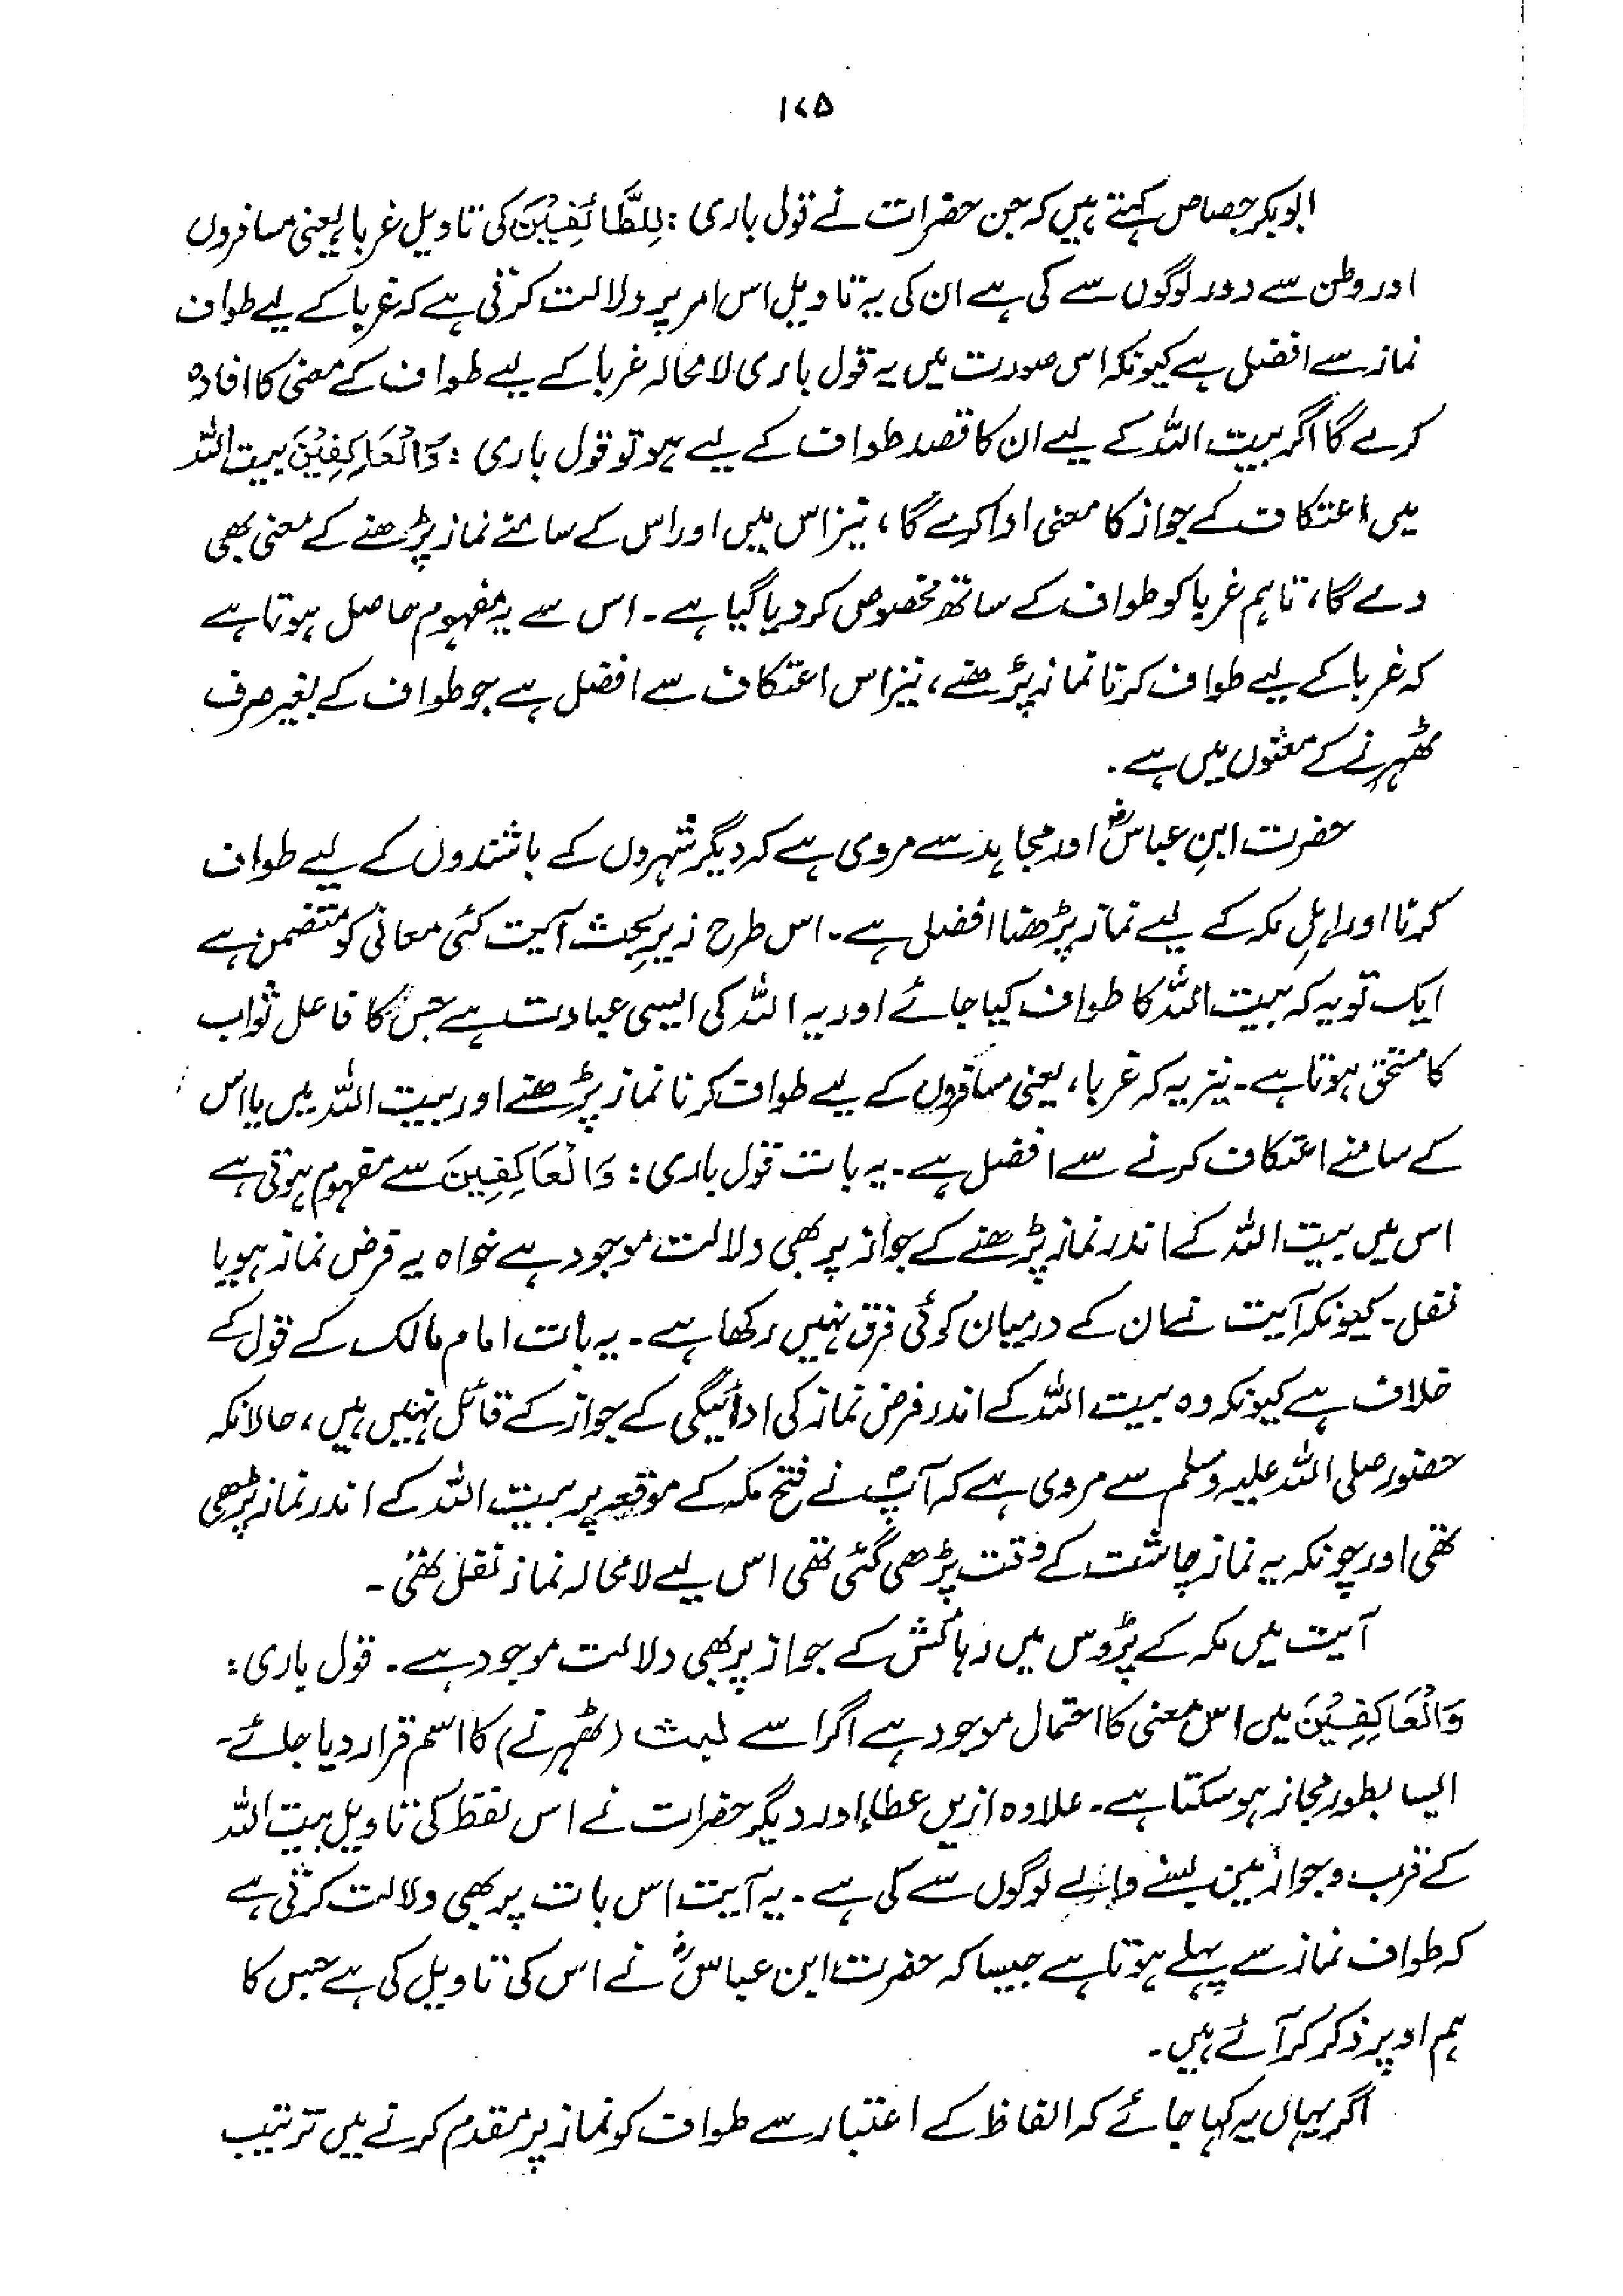 ۱۷۵
ابوبکر جصاص کہتے ہیں کہ جن حضرات نے قول باری : لِلطَّائِفِيْنَ کی تاویل غربا، یعنی مسافروں
اور وطن سے دور لوگوں سے کی ہے ان کی یہ تاویل اس امر پر دلالت کرتی ہے کہ غربا کے لیے طواف
نماز سے افضل ہے کیونکہ اس صورت میں یہ قول باری لا محالہ غربا کے لیے طواف کے معنی کا افادہ
کرے گا اگر بیت اللہ کے لیے ان کا قصد طواف کے لیے ہو تو قول باری : وَالْعَاكِفِيْنَ بیت اللہ
میں اعتکاف کے جواز کا معنی ادا کرے گا، نیز اس میں اور اس کے سامنے نماز پڑھنے کے معنی بھی
دے گا، تاہم غربا کو طواف کے ساتھ مخصوص کر دیا گیا ہے۔ اس سے یہ مفہوم حاصل ہوتا ہے
کہ غربا کے لیے طواف کرنا نماز پڑھنے، نیز اس اعتکاف سے افضل ہے جو طواف کے بغیر صرف
ٹھہرنے کے معنوں میں ہے۔
حضرت ابنِ عباسؓ اور مجاہد سے مروی ہے کہ دیگر شہروں کے باشندوں کے لیے طواف
کرنا اور اہلِ مکہ کے لیے نماز پڑھنا افضل ہے۔ اس طرح زیرِ بحث آیت کئی معانی کو متضمن ہے
ایک تو یہ کہ بیت اللہ کا طواف کیا جائے اور یہ اللہ کی ایسی عبادت ہے جس کا فاعل ثواب
کا مستحق ہوتا ہے۔ نیز یہ کہ غربا، یعنی مسافروں کے لیے طواف کرنا نماز پڑھنے اور بیت اللہ میں یا اس
کے سامنے اعتکاف کرنے سے افضل ہے۔ یہ بات قول باری : وَالْعَاكِفِينَ سے مفہوم ہوتی ہے
اس میں بیت اللہ کے اندر نماز پڑھنے کے جواز پر بھی دلالت موجود ہے خواہ یہ فرض نماز ہو یا
نفل۔ کیونکہ آیت نے ان کے درمیان کوئی فرق نہیں رکھا ہے۔ یہ بات امام مالک کے قول کے
خلاف ہے کیونکہ وہ بیت اللہ کے اندر فرض نماز کی ادائیگی کے جواز کے قائل نہیں ہیں، حالانکہ
حضور صلی اللہ علیہ وسلم سے مروی ہے کہ آپؐ نے فتح مکہ کے موقعہ پر بیت اللہ کے اندر نماز پڑھی
تھی اور چونکہ یہ نماز چاشت کے وقت پڑھی گئی تھی اس لیے لا محالہ نماز نفل تھی۔
آیت میں مکہ کے پڑوس میں رہائش کے جواز پر بھی دلالت موجود ہے۔ قول باری :
وَالْعَاكِفِيْنَ میں اس معنی کا احتمال موجود ہے اگر اسے لبث (ٹھہرنے) کا اسم قرار دیا جائے۔
ایسا بطور مجاز ہو سکتا ہے۔ علاوہ ازیں عطاء اور دیگر حضرات نے اس لفظ کی تاویل بیت اللہ
کے قرب و جوار میں بسنے والے لوگوں سے کی ہے۔ یہ آیت اس بات پر بھی دلالت کرتی ہے
کہ طواف نماز سے پہلے ہوتا ہے جیسا کہ حضرت ابن عباسؓ نے اس کی تاویل کی ہے جس کا
ہم اوپر ذکر کر آئے ہیں۔
اگر یہاں یہ کہا جائے کہ الفاظ کے اعتبار سے طواف کو نماز پر مقدم کرنے میں ترتیب